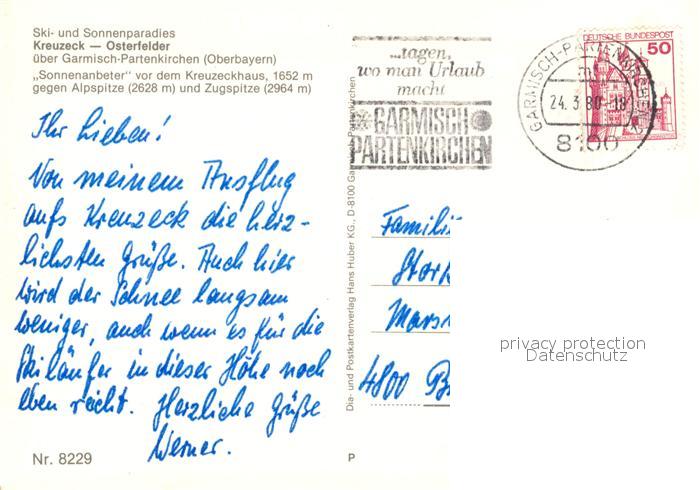 Ski- und Sonnenparadies
Kreuzeck — Osterfelder
über Garmisch-Partenkirchen (Oberbayern)
„Sonnenanbeter“ vor dem Kreuzeckhaus, 1652 m
gegen Alpspitze (2628 m) und Zugspitze (2964 m)
Ihr Lieben!
Von meinem Ausflug
aufs Kreuzeck die herz-
lichsten Grüße. Auch hier
wird der Schnee langsam
weniger, auch wenn es für die
Skiläufer in dieser Höhe noch
eben reicht. Herzliche Grüße
Werner.
Nr. 8229
P
Dia- und Postkartenverlag Hans Huber KG., D-8100 Garmisch-Partenkirchen
...tagen,
wo man Urlaub
macht
GARMISCH
PARTENKIRCHEN
GARMISCH-PARTENKIRCHEN
m
24.3.80-18
8100
DEUTSCHE BUNDESPOST
50
Famili
Stork
Mars
4800 B
privacy protection
Datenschutz